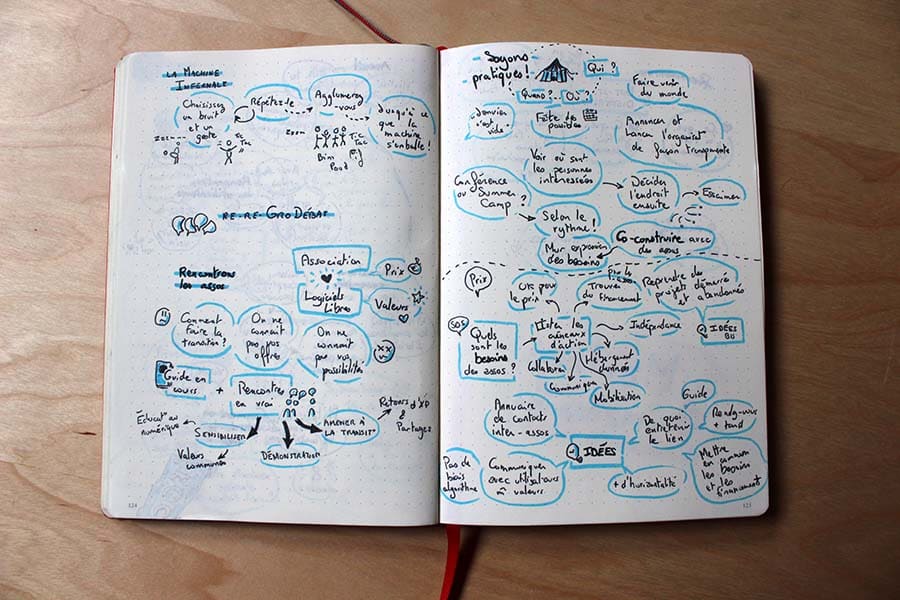 LA MACHINE
INFERNALE
Choisissez
un bruit
et un
geste
Répétez-le
Agglomérez
-vous
Jusqu'à ce
que la
machine
s'emballe !
Zzz
Tac
Zoom
Tic
Tac
Bim
RE-RE-GRODÉBAT
Rencontrons
les assos
Association
Logiciels
Libres
Prix
Valeurs
Comment
faire la
transition ?
On ne
connait
pas vos
offres
On ne
connait
pas vos
possibilités
Guide en
cours
+
Rencontre
en vrai
Éducat° au
numérique
SENSIBILISER
Valeurs
communes
DÉMONSTRATION
AMENER À
LA TRANSIT°
Retours d'XP
&
Partages
124
Soyons
pratiques !
Qui ?
Quand ?
Où ?
Faire venir
du monde
Janvier
c'est
vide
Faite des
possibles
Annoncer et
lancer l'organisat°
de façon transparente
Voir où sont
les personnes
intéressées
Conférence
ou Summer
Camp ?
Décider
l'endroit
ensuite
Essaimer
Selon le
rythme !
Mur expression
des besoins
Co-construire avec
des assos
Prix
OK pour
le prix
Trouver
du financement
Reprendre des
projets démarrés
et abandonnés
IDÉES
Bis
SOS
Quels
sont les
besoins
des assos ?
Inter les
réseaux
d'action
Indépendance
Collaborat°
Communiquer
Hébergement
données
Mobilisation
Annuaire
de contacts
inter-assos
IDÉES
De quoi
entretenir
le lien
Guide
Rendez-vous
+ tard
Pas de
biais
algorithme
Communiquer
avec utilisateurs
à valeurs
+ d'horizontalité
Mettre
en commun
les besoins
et les
financement
125